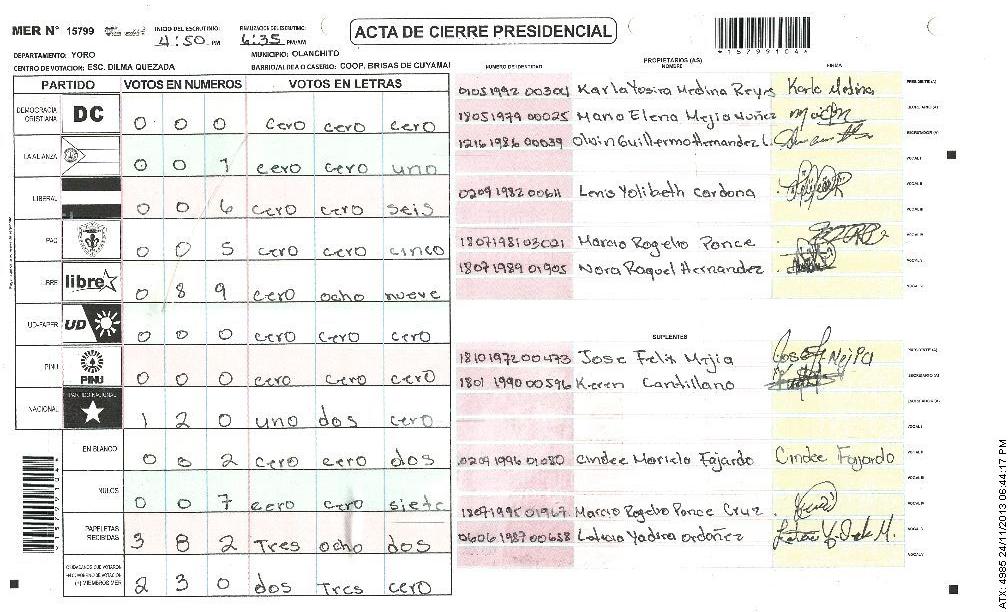 MER N° 15799
INICIO DEL ESCRUTINIO:
4:50 PM
FINALIZACION DEL ESCRUTINIO:
6:35 PM/AM
ACTA DE CIERRE PRESIDENCIAL
DEPARTAMENTO: YORO
MUNICIPIO: OLANCHITO
CENTRO DE VOTACION: ESC. DILMA QUEZADA
BARRIO/ALDEA O CASERIO: COOP. BRISAS DE CUYAMAI
PARTIDO VOTOS EN NUMEROS VOTOS EN LETRAS
DEMOCRACIA CRISTIANA DC 0 0 0 cero cero cero
LA ALIANZA 0 0 1 cero cero uno
LIBERAL 0 0 6 cero cero seis
PAC 0 0 5 cero cero cinco
LIBRE libre 0 8 9 cero ocho nueve
UD-FAPER UD 0 0 0 cero cero cero
PINU PINU 0 0 0 cero cero cero
NACIONAL PARTIDO NACIONAL 1 2 0 uno dos cero
EN BLANCO 0 0 2 cero cero dos
NULOS 0 0 7 cero cero siete
PAPELETAS RECIBIDAS 3 8 2 Tres ocho dos
CIUDADANOS QUE VOTARON
(+) MIEMBROS MER 2 3 0 dos Tres cero
PROPIETARIOS (AS)
NUMERO DE IDENTIDAD NOMBRE FIRMA
0105 1992 00304 Karla Yosira Medina Reyes Karla Medina
1805 1979 00025 Maria Elena Mejia Nuñez
1216 1986 00039 Olvin Guillermo Hernandez L.
0209 1982 00611 Lenis Yolibeth Cardona
1807 1981 03021 Marcio Rogelio Ponce
1807 1989 01905 Nora Raquel Hernandez
SUPLENTES
1810 1972 00473 Jose Felix Mejia Jose F Mejia
1801 1990 00596 Keren Cantillano
0209 1996 01080 Cindee Mariela Fajardo Cindee Fajardo
1807 1995 01967 Marcio Rogelio Ponce Cruz
0606 1987 00658 Leticia Yadira Ordoñez
*15799104*
ATX: 4985 24/11/2013 06:44:17 PM